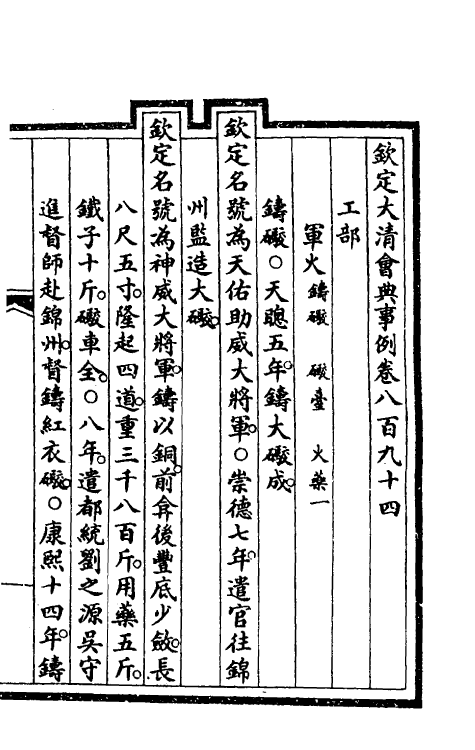 欽定大清會典事例卷八百九十四
工部
軍火鑄礮 礮臺 火藥一
鑄礮○天聰五年。鑄大礮成。
欽定名號為天佑助威大將軍。○崇德七年。遣官往錦
州監造大礮。
欽定名號為神威大將軍。鑄以銅。前弇後豐底少斂。長
八尺五寸。隆起四道。重三千八百斤。用藥五斤。
鐵子十斤。礮車全。○八年。遣都統劉之源吳守
進督師赴錦州。督鑄紅衣礮。○康熙十四年。鑄